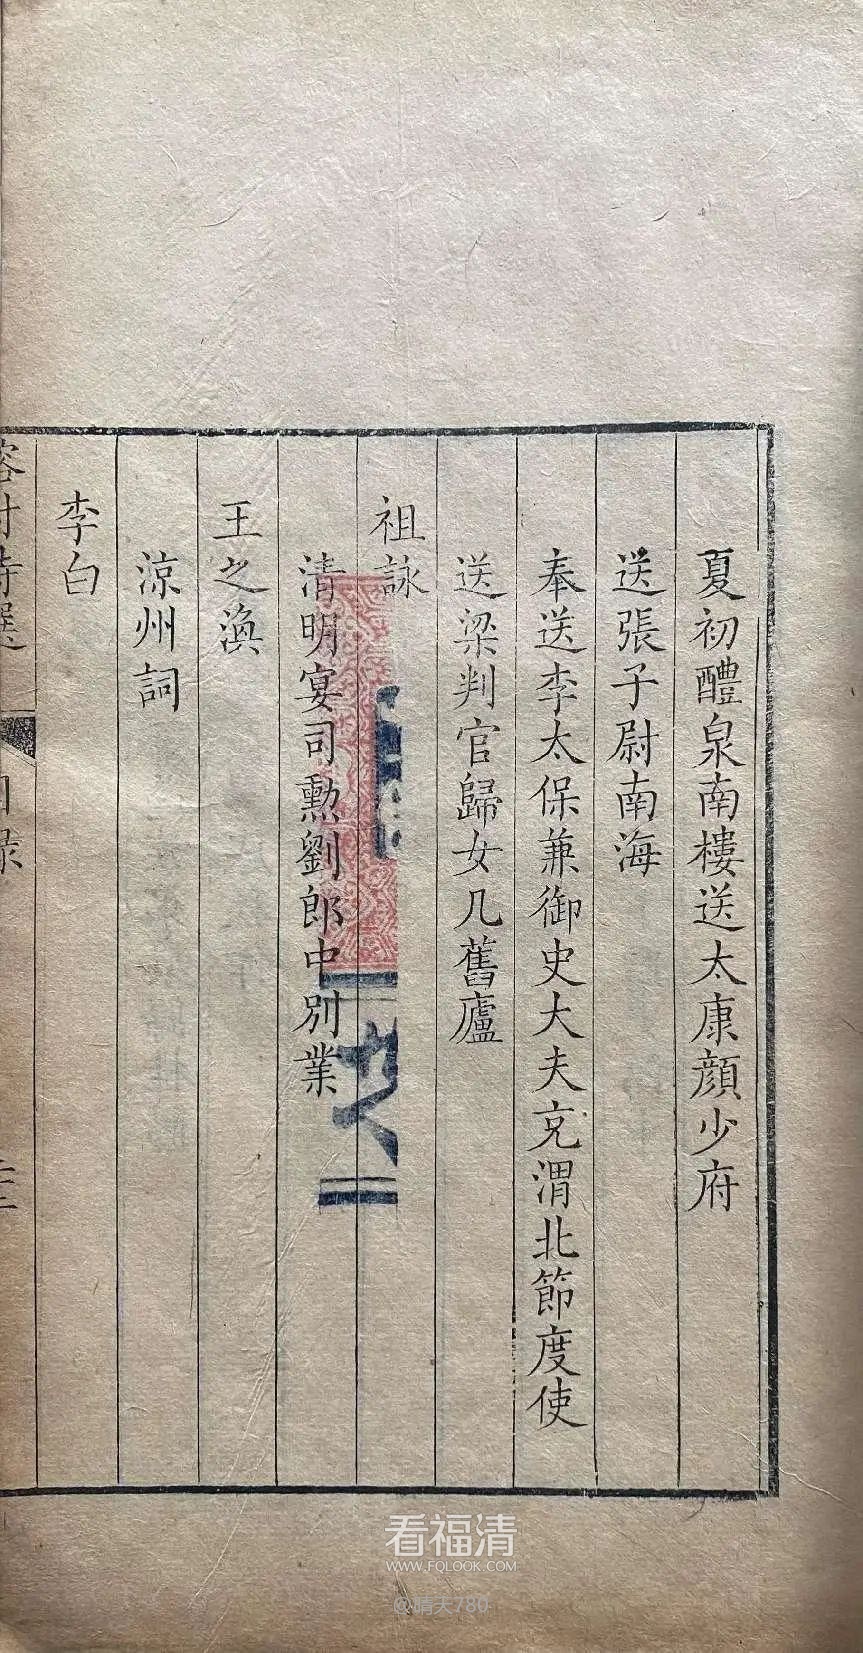 夏初醴泉南樓送太康顏少府
送張子尉南海
奉送李太保兼御史大夫充渭北節度使
送梁判官歸女几舊廬
祖詠
清明宴司勲劉郎中別業
王之渙
涼州詞
李白
看福清
WWW.FQLOOK.COM
@晴天780